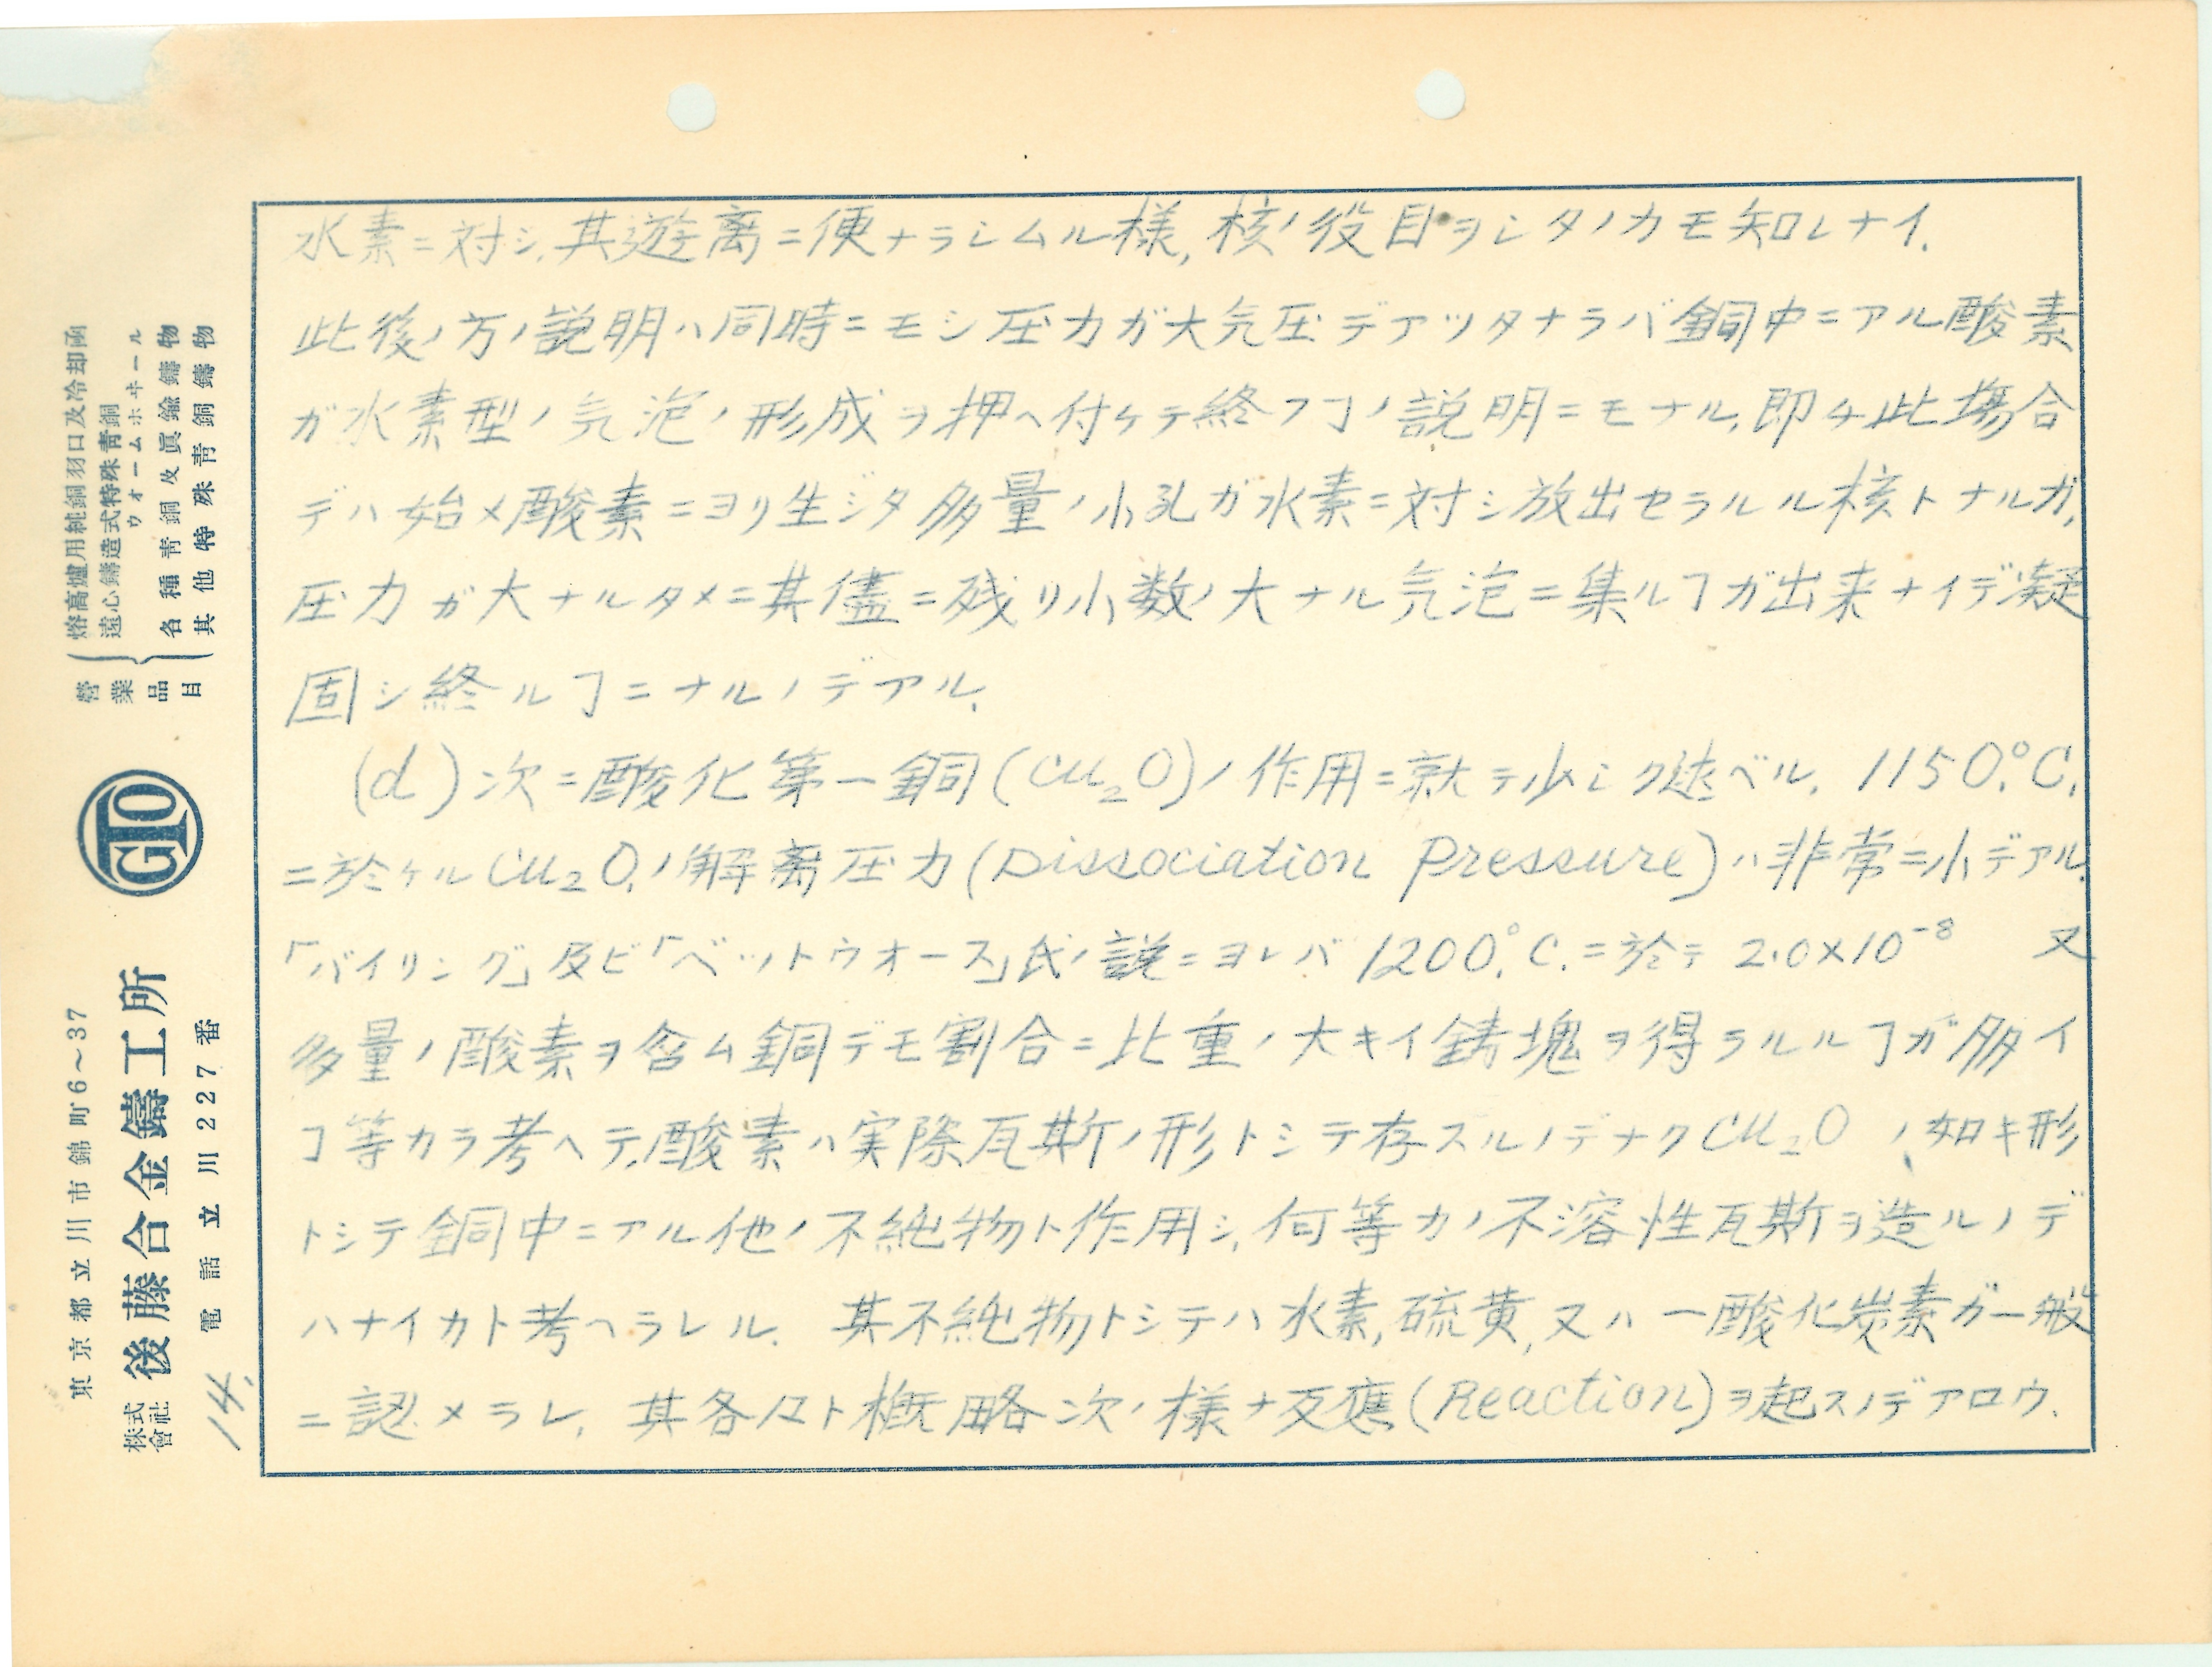 水素ニ対シ,其遊離ニ便ナラシムル様,核ノ役目ヲシタノカモ知レナイ.
此後ノ方ノ説明ハ同時ニモシ圧力ガ大気圧デアツタナラバ銅中ニアル酸素
ガ水素型ノ気泡ノ形成ヲ押ヘ付ケテ終フヿノ説明ニモナル,即チ此場合
デハ始メ酸素ニヨリ生ジタ多量ノ小孔ガ水素ニ対シ放出セラルル核トナルガ,
圧力ガ大ナルタメニ其儘ニ残リ小数ノ大ナル気泡ニ集ルヿガ出来ナイデ凝
固シ終ルヿニナルノデアル.
(d)次ニ酸化第一銅(Cu₂O)ノ作用ニ就テ少シク述ベル. 1150.°C.
ニ於ケルCu₂O.ノ解离圧力(Dissociation Pressure)ハ非常ニ小デアル.
「バイリング」及ビ「ベットウオース」氏ノ説ニヨレバ 1200.°C.ニ於テ 2.0×10⁻⁸ 又
多量ノ酸素ヲ含ム銅デモ割合ニ比重ノ大キイ鋳塊ヲ得ラルルヿガ多イ
ヿ等カラ考ヘテ,酸素ハ実際瓦斯ノ形トシテ存スルノデナクCu₂O ノ如キ形
トシテ銅中ニアル他ノ不純物ト作用シ,何等カノ不溶性瓦斯ヲ造ルノデ
ハナイカト考ヘラレル. 其不純物トシテハ水素,硫黄,又ハ一酸化炭素ガ一般
ニ認メラレ, 其各々ト概略次ノ様ナ反應(Reaction)ヲ起スノデアロウ.
營業品目
熔高爐用純銅羽口及冷却函
遠心鑄造式特殊靑銅
ウオームホヰール
各種靑銅及眞鍮鑄物
其他特殊靑銅鑄物
GTO
東京都立川市錦町6～37
株式會社 後藤合金鑄工所
電話立川227番
14.